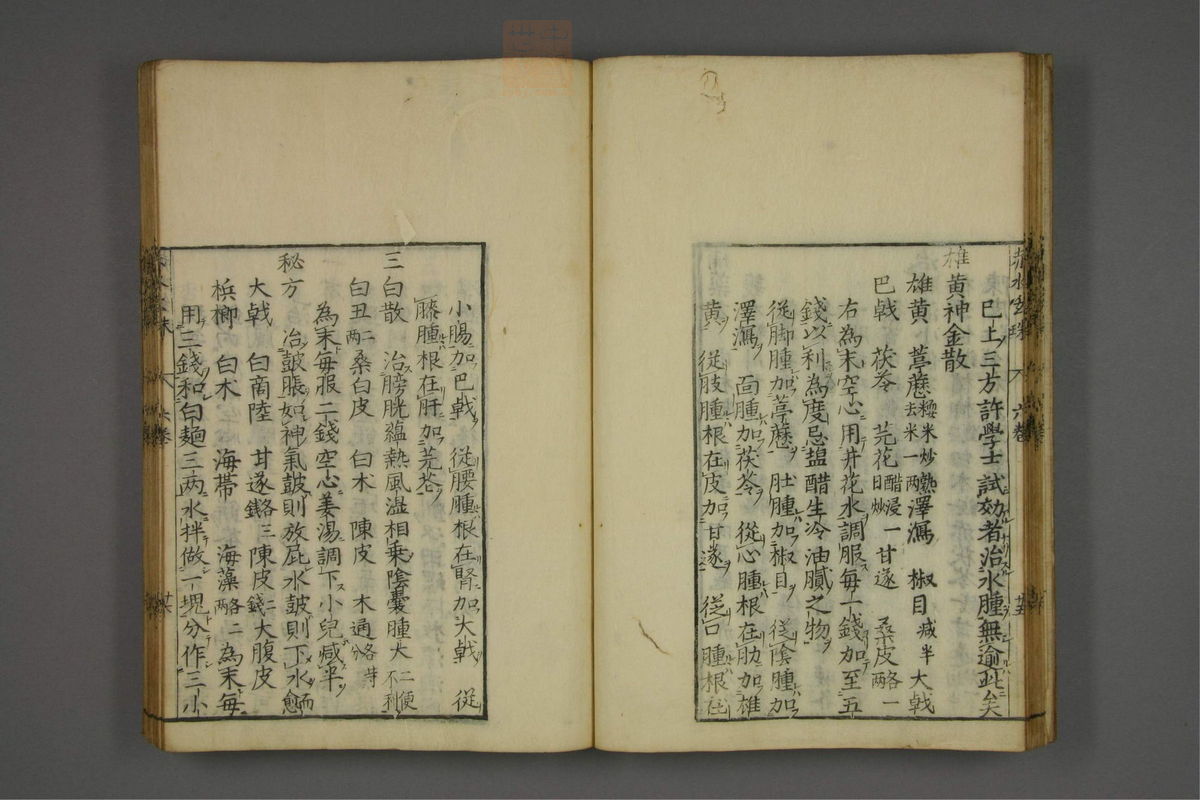 已上三方許學士試効者治水腫無逾此矣
雄黄神金散
雄黄 葶藶糯米炒熟去米一两澤瀉 椒目减半大戟
巴戟 茯苓 芫花醋浸一日炒甘遂 桑皮各一两
右為末空心用井花水調服每一錢加至五
錢以利為度忌盐醋生冷油膩之物
從脚腫加葶藶 肚腫加椒目 從陰腫加
澤瀉 面腫加茯苓 從心腫根在肋加雄
黄 從肢腫根在皮加甘遂 從口腫根在
小腸加巴戟 從腰腫根在腎加大戟 從
膝腫根在肝加芫花
三白散 治膀胱蘊熱風湿相乗陰囊腫大二便不利
白丑二两桑白皮 白木 陳皮 木通各等分
為末每服二錢空心姜湯調下小兒减半
秘方 治皷脹如神氣皷則放屁水皷則下水而愈
大戟 白商陸 甘遂各三錢陳皮二錢大腹皮
梹榔 白木 海帶 海藻各二两為末每
用三錢和白麺三两水拌做一塊分作三小
六卷